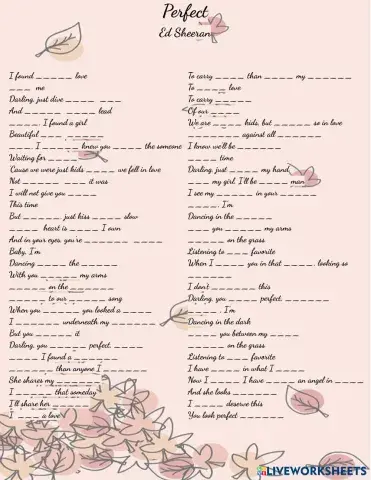 Perfect
Ed Sheeran
I found _ _ _ _ _ love
_ _ _ me
Darling, just dive _ _ _ _ _ _
And _ _ _ _ _ _ _ _ _ lead
_ _ _ _. I found a girl
Beautiful _ _ _ _ _ _ _ _
_ _. I _ _ _ _ _ knew you _ _ _ _ the someone
Waiting for _ _ _ _
'Cause we were just kids _ _ _ _ we fell in love
Not _ _ _ _ _ _ it was
I will not give you _ _ _ _
This time
But _ _ _ _ _, just kiss _ _ _ _ slow
_ _ _ _ heart is _ _ _ _ I own
And in your eyes, you're _ _ _ _ _ _ _ _ _
Baby, I'm
Dancing _ _ _ _ the _ _ _
With you _ _ _ _ _ my arms
_ _ _ _ _ on the _ _ _ _ _
_ _ _ _ _ to our _ _ _ _ _ song
When you _ _ _ _ _ you looked a _ _ _ _
I _ _ _ _ _ _ underneath my _ _ _ _ _ _
But you _ _ _ _ _ it
Darling, you _ _ _ _ perfect _ _ _ _
_ _ _ _ I found a _ _ _ _ _
_ _ _ _ _ than anyone I _ _ _ _
She shares my _ _ _ _ _
I _ _ _ _ _ that someday
I'll share her _ _ _ _ _
I _ _ _ _ a love
To carry _ _ _ _ _ than _ _ _ _ my _ _ _ _ _ _
To _ _ _ _ love
To carry _ _ _ _ _
Of our _ _ _
We are _ _ _ _ kids, but _ _ _ _ _ so in love
_ _ _ _ _ against all _ _ _ _ _
I know we'll be _ _ _ _ _
_ _ _ _ time
Darling, just _ _ _ _ my hand
_ _ _ my girl, I'll be _ _ _ _ man
I see my _ _ _ _ _ in your _ _ _ _
_ _ _ _. I'm
Dancing in the _ _ _ _
_ _ _ you _ _ _ _ _ my arms
_ _ _ _ on the grass
Listening to _ _ _ favorite
When I _ _ _ you in that _ _ _ _, looking so
_ _ _ _ _
I don't _ _ _ _ _ _ this
Darling, you _ _ _ _ perfect, _ _ _ _ _
_ _ _ _. I'm
Dancing in the dark
_ _ _ _ you between my _ _ _ _
_ _ _ _ _ on the grass
Listening to _ _ _ favorite
I have _ _ _ _ in what I _ _ _ _
Now I _ _ _ _ I have _ _ _ _ an angel in _ _ _ _ _
And she looks _ _ _ _ _
I _ _ _ _ deserve this
You look perfect _ _ _ _ _ _
LIVEWORKSHEETS